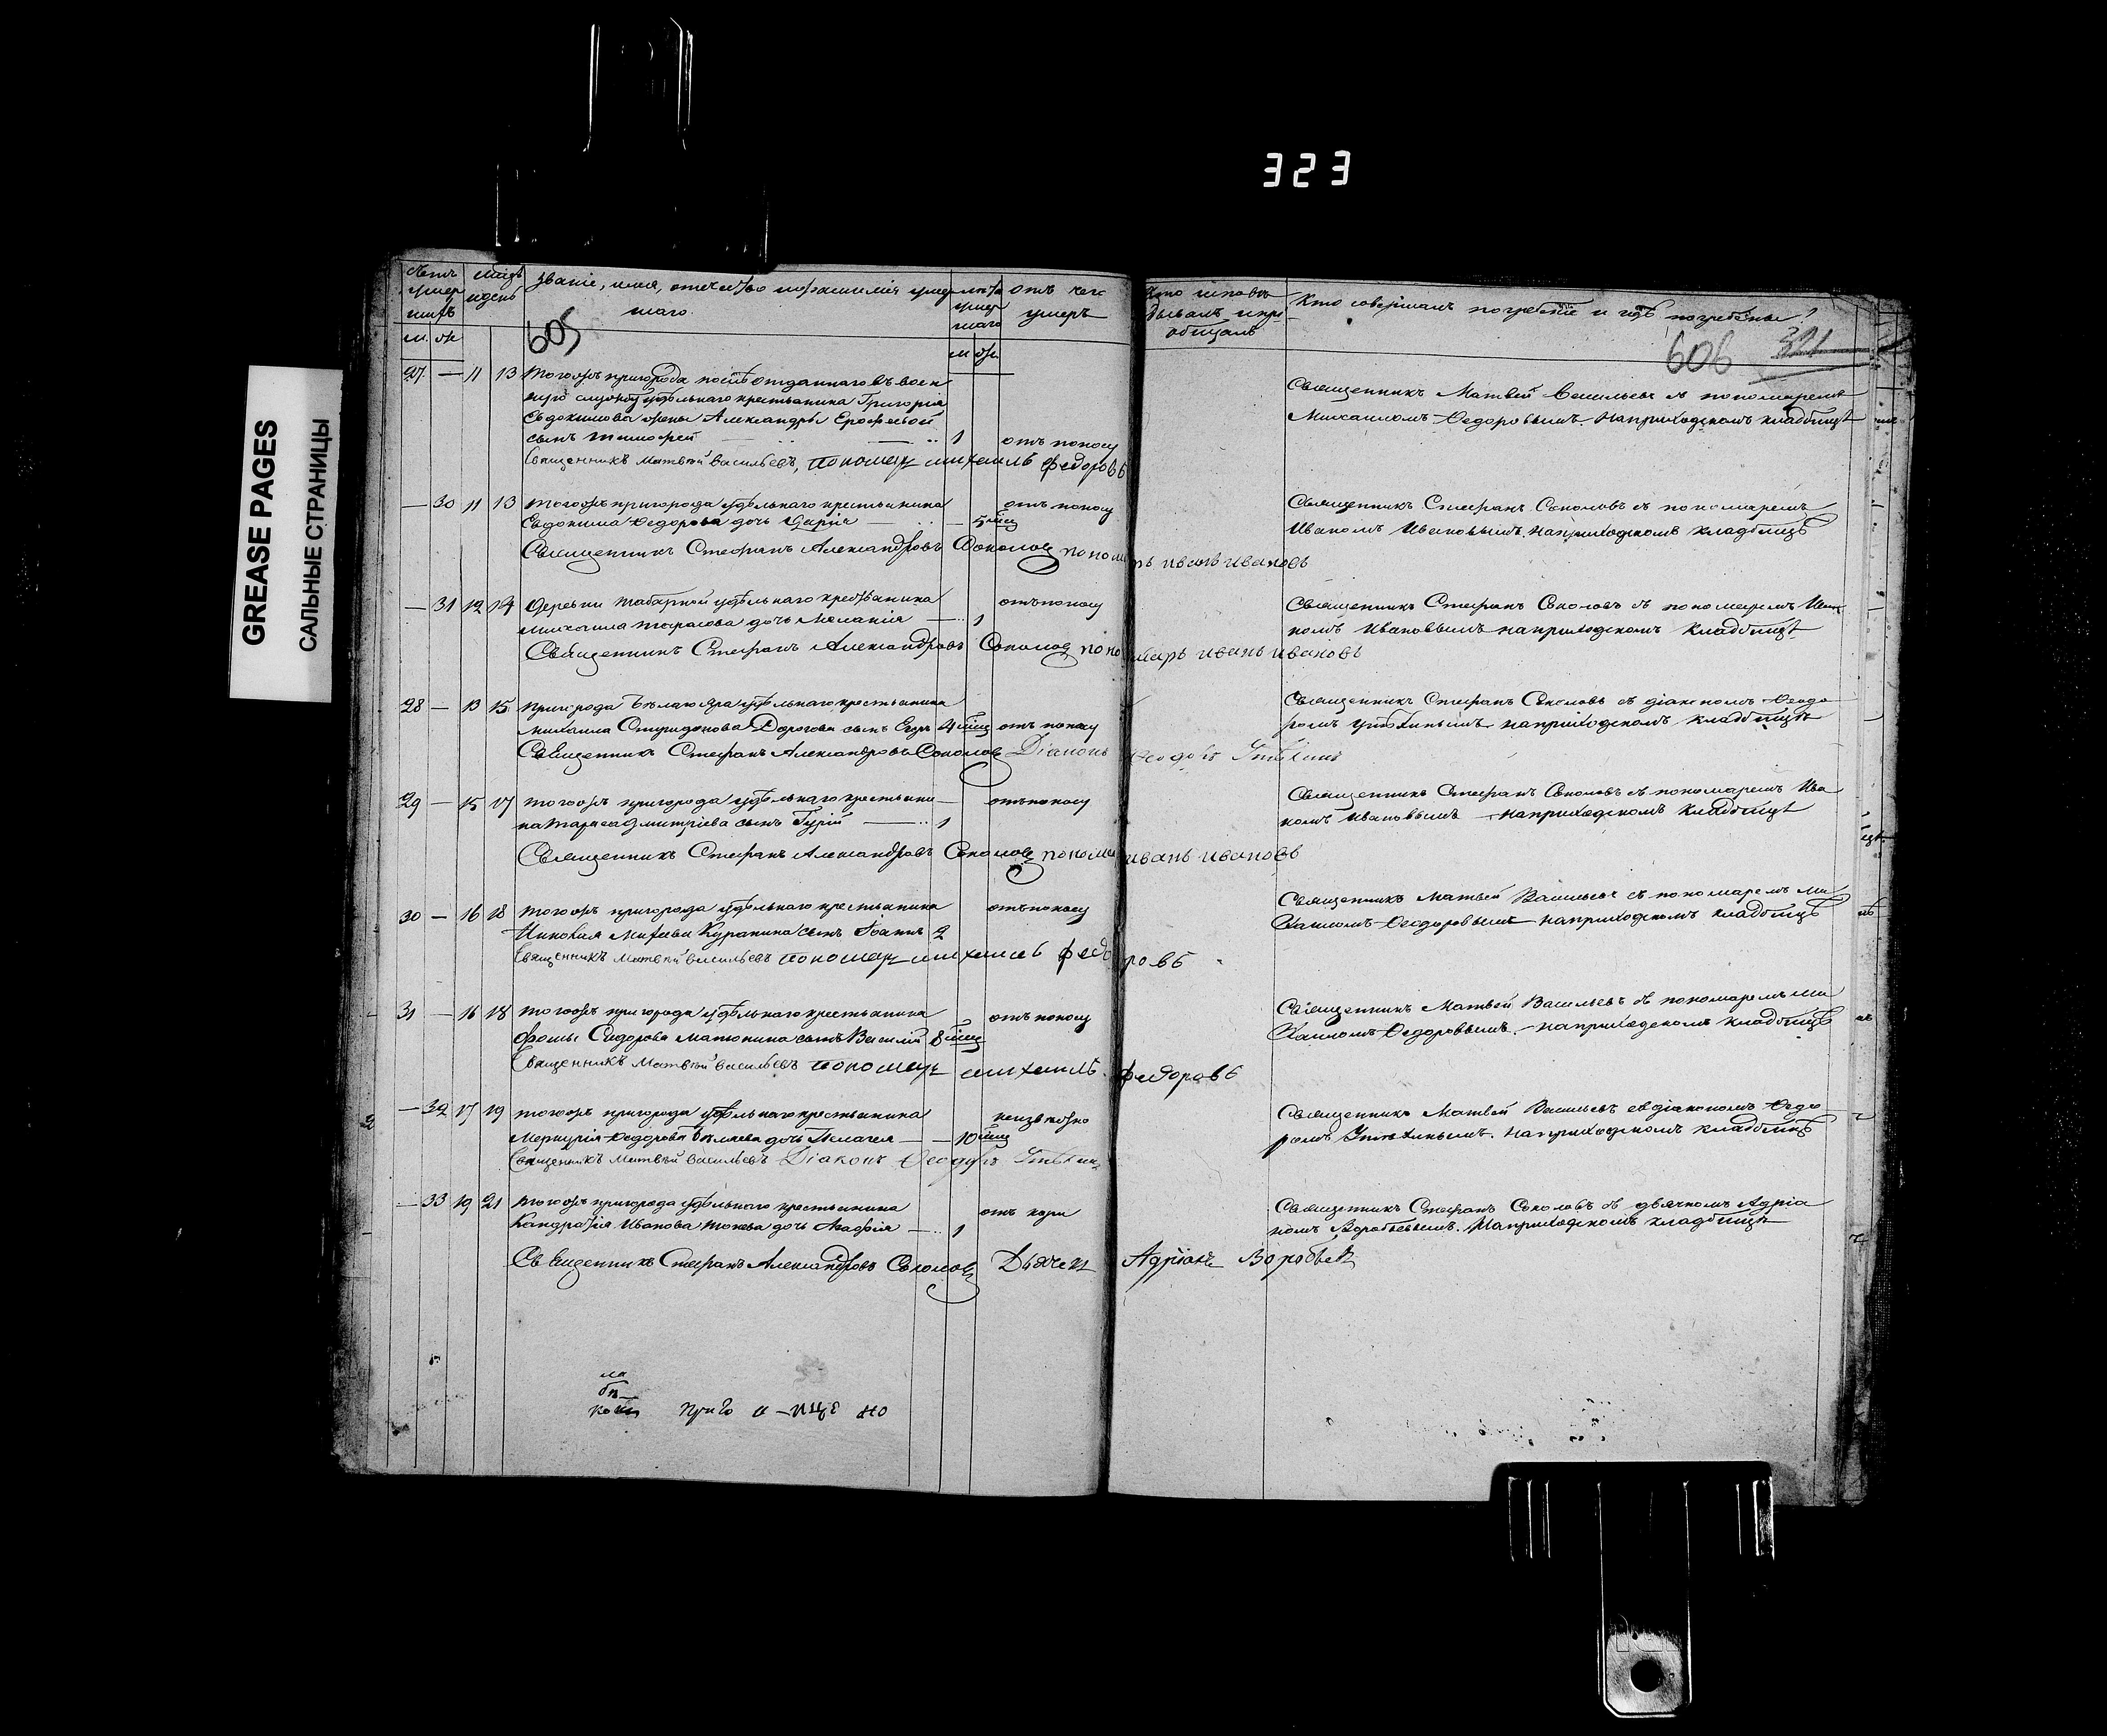 323
GREASE PAGES
САЛЬНЫЕ СТРАНИЦЫ
Счетъ умершихъ
Мѣсяцъ и день
Званіе, имя, отчество и фамилія умершаго
лѣта умершаго
отъ чего умеръ
Кто исповѣдывалъ и пріобщалъ
Кто совершалъ погребеніе и гдѣ погребены?
м. ж.
м ж.
605
606 321
27 — 11 13 Того жъ пригорода послѣ отданнаго въ воен
ную службу удѣльнаго крестьянина Григорія
Евдокимова жены Александры Ерофеевой
сынъ Тимофей 1 отъ поносу
Священникъ Матвей Васильевъ съ пономаремъ
Михаиломъ Ѳедоровымъ. На приходскомъ кладбищѣ
Священникъ Матвѣй Васильевъ, пономарь михаилъ федоровъ
— 30 11 13 Того жъ пригорода удѣльнаго крестьянина
Евдокима Ѳедорова дочь Дарія — 5 мѣц отъ поносу
Священникъ Стефанъ Соколовъ съ пономаремъ
Иваномъ Ивановымъ. На приходскомъ кладбищѣ
Священникъ Стефанъ Александровъ Соколовъ пономарь иванъ ивановъ
— 31 12 14 Деревни Табарной удѣльнаго крестьянина
Михаила Тарасова дочь Меланія — 1 отъ поносу
Священникъ Стефанъ Соколовъ съ пономаремъ Ива
номъ Ивановымъ на приходскомъ кладбищѣ
Священникъ Стефанъ Александровъ Соколовъ пономарь иванъ ивановъ
28 — 13 15 Пригорода Бѣлаго Яра удѣльнаго крестьянина
Михаила Спиридонова Дорогова сынъ Егоръ 4 мѣц отъ поносу
Священникъ Стефанъ Соколовъ съ діакономъ Ѳеодо
ромъ Утѣхинымъ на приходскомъ кладбищѣ
Священникъ Стефанъ Александровъ Соколовъ Діаконъ Ѳеодоръ Утѣхинъ
29 — 15 17 Того жъ пригорода удѣльнаго крестьяни
на Тараса Дмитріева сынъ Гурій — 1 отъ поносу
Священникъ Стефанъ Соколовъ съ пономаремъ Ива
номъ Ивановымъ на приходскомъ кладбищѣ
Священникъ Стефанъ Александровъ Соколовъ пономарь иванъ ивановъ
30 — 16 18 Того жъ пригорода удѣльнаго крестьянина
Николая Михеева Куракина сынъ Іоаннъ 2 отъ поносу
Священникъ Матвей Васильевъ съ пономаремъ Ми
хаиломъ Ѳеодоровымъ на приходскомъ кладбищѣ
Священникъ Матвѣй Васильевъ пономарь михаилъ федоровъ
31 — 16 18 Того жъ пригорода удѣльнаго крестьянина
Фомы Сидорова Матюнина сынъ Василій 8 мѣц отъ поносу
Священникъ Матвей Васильевъ съ пономаремъ Ми
хаиломъ Ѳедоровымъ. На приходскомъ кладбищѣ
Священникъ Матвѣй Васильевъ пономарь михаилъ федоровъ
— 32 17 19 Того жъ пригорода удѣльнаго крестьянина
Меркурія Ѳедорова Бѣляева дочь Пелагея — 10 мѣц неизвѣстно
Священникъ Матвей Васильевъ съ діакономъ Ѳедо
ромъ Утѣхинымъ. На приходскомъ кладбищѣ
Священникъ Матвѣй Васильевъ Діаконъ Ѳеодоръ Утѣхинъ
— 33 19 21 Того жъ пригорода удѣльнаго крестьянина
Кандратія Иванова дочь — 1 отъ кори
Священникъ Стефанъ Соколовъ съ дьячкомъ Адріа
номъ Воробьевымъ. На приходскомъ кладбищѣ
Священникъ Стефанъ Александровъ Соколовъ Дьячекъ Адріанъ Воробьевъ